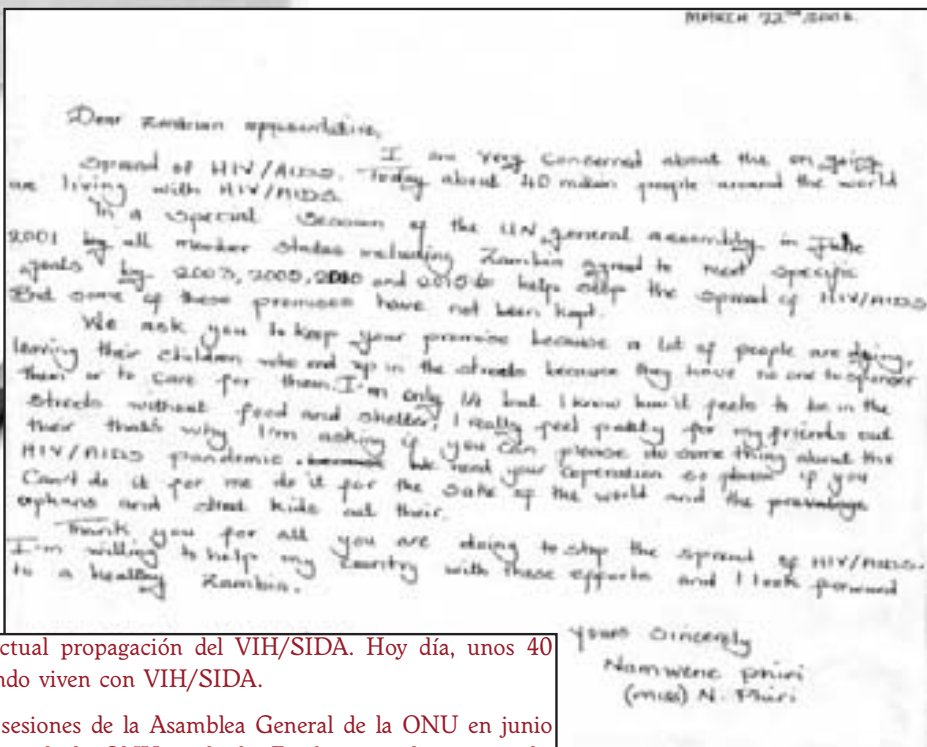 MARCH 22ND, 2006.
Dear Zambian representative,
I am very concerned about the on going
spread of HIV/AIDS. Today about 40 million people around the world
are living with HIV/AIDS
In a special Session of the UN general assembly in June
2001 by all member states including Zambia agreed to meet specific
goals by 2003, 2005, 2010 and 2015 to help stop the spread of HIV/AIDS
But some of these promises have not been kept.
We ask you to keep your promise because a lot of people are dying,
leaving their children who end up in the streets because they have no one to sponser
them or to care for them. I'm only 14 but I know how it feels to be in the
streets without food and shelter! I really feel for my friends out
their thats why I'm asking if you can please do some thing about the
HIV/AIDS pandemic. We need your coperation so please if you
Can't do it for me do it for the sake of the world and the
orphans and street kids out their.
Thank you for all you are doing to stop the spread of HIV/AIDS.
I'm willing to help my country with these efforts and I look forward
to a healthy Zambia.
yours Sincerely
Namwene phiri
(miss) N. Phiri
ctual propagación del VIH/SIDA. Hoy día, unos 40
ndo viven con VIH/SIDA.
sesiones de la Asamblea General de la ONU en junio